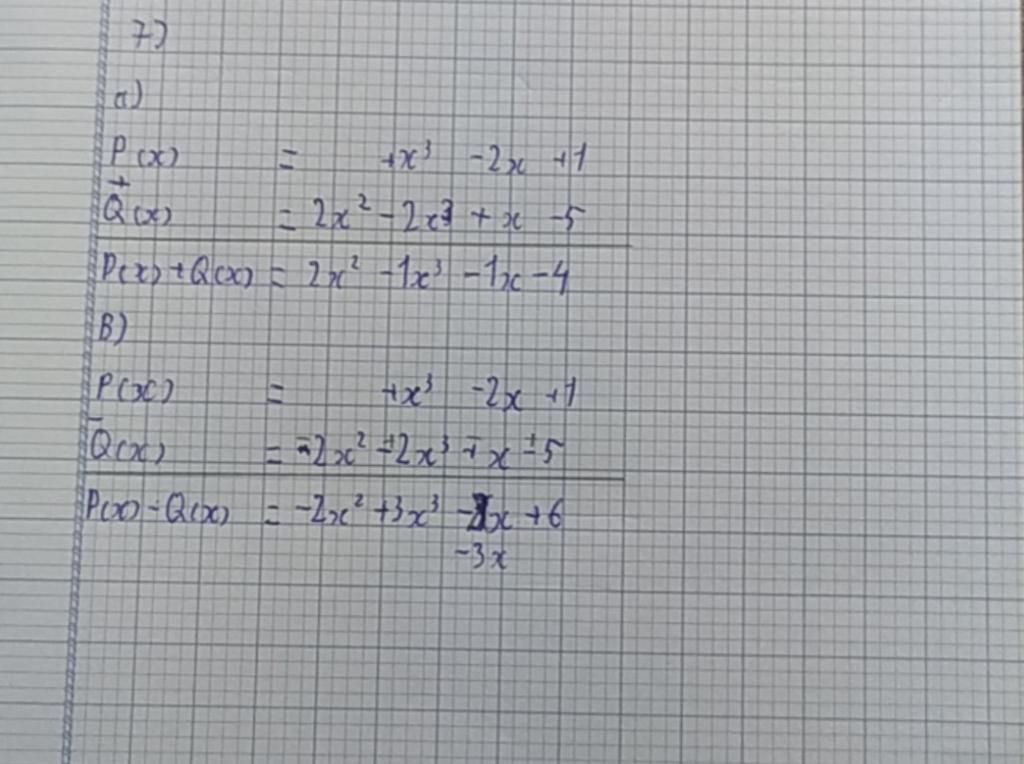 7)
a)
P(x) = +x³ -2x +1
+
Q(x) = 2x² -2x³ +x -5
P(x)+Q(x) = 2x² -1x³ -1x -4
B)
P(x) = +x³ -2x +1
-
Q(x) = -2x² +2x³ -x +5
P(x)-Q(x) = -2x² +3x³ - x +6
-3x